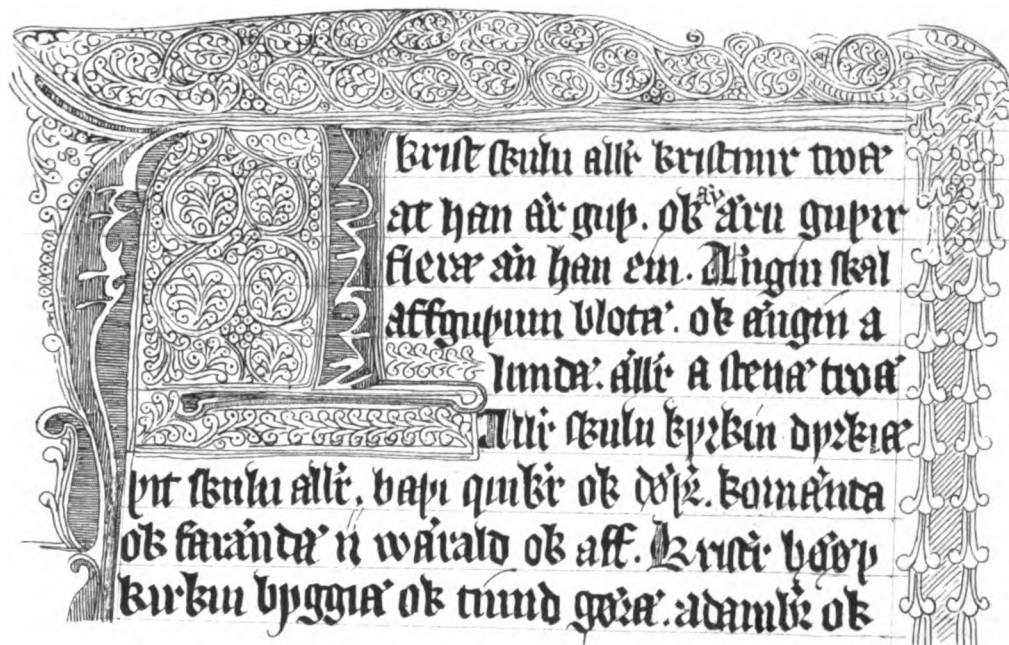 A krist skulu allr kristnir troæ
at han ær guþ. ok æy æru guþir
fleræ æn han en. Ængin skal
affguþum blotæ. ok ængin a
lundæ. ællr a stenæ troæ
Allr skulu kyrkiu dyrkiæ
þit skulu allr, baþi quikr ok døþr. komænta
ok farændæ ij wærald ok aff. Kristr bøþ
kirkiu byggiæ ok tiund gøræ. adambr ok